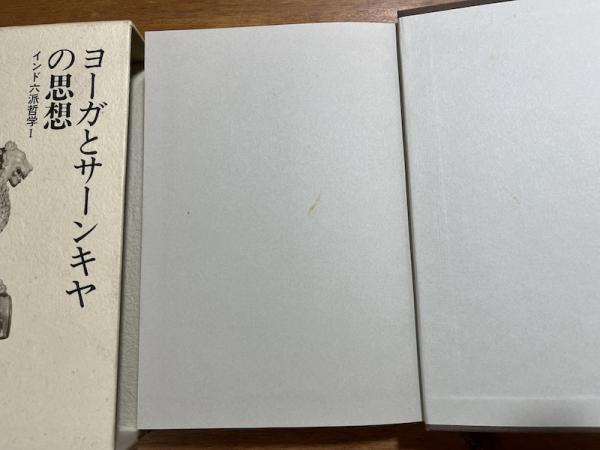 ヨーガとサーンキヤ
の思想
インド六派哲学I